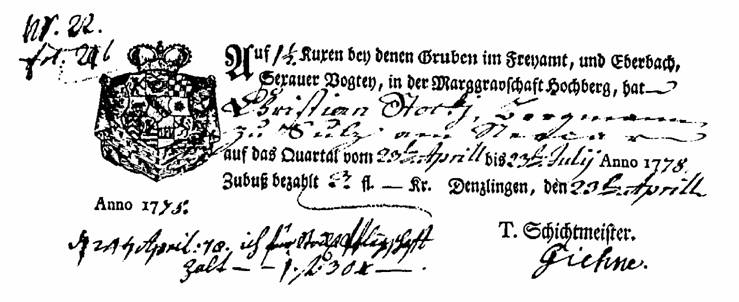 Nr. 22.
fol. 216
Auf 1½ Kuxen bey denen Gruben im Freyamt, und Eberbach,
Sexauer Vogtey, in der Marggravschaft Hochberg, hat
Christian Stotz, Bergmann
zu Sulz am Neccar
auf das Quartal vom 23ten Aprill bis 23ten July Anno 1778.
Zubuß bezahlt fl. — Kr. Denzlingen, den 23ten Aprill
Anno 1778.
T. Schichtmeister.
April: 78. ich für
Zalt — — 1 f 30 x —
Giehne.